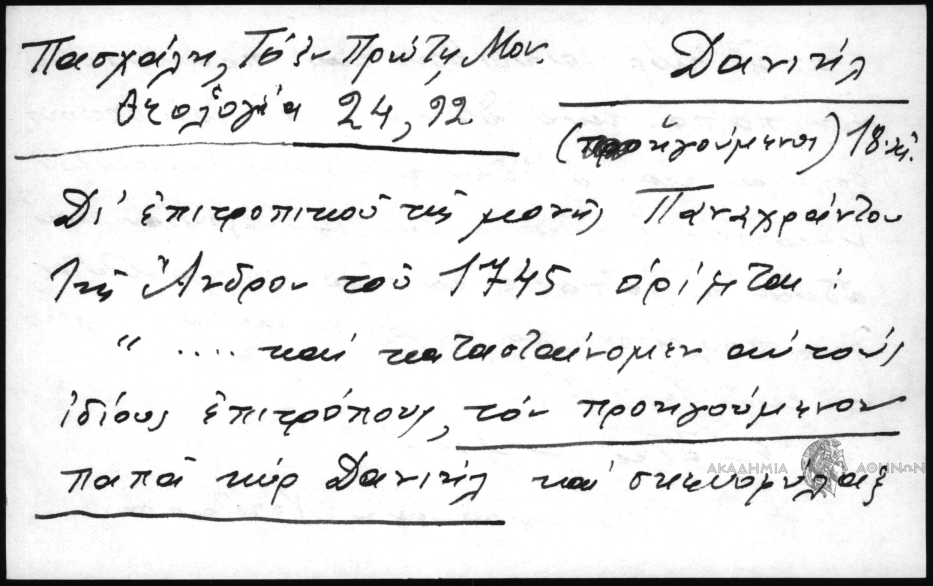 Πασχάλη, Τὸ ἐν Πρώτῃ Μον.
Θεολογία 24, 92
Δανιήλ
(προηγούμενος) 18 αἰ.
Δι' ἐπιτροπικοῦ τῆς μονῆς Παναχράντου
τῆς Ἄνδρου τοῦ 1745 ὁρίζεται :
" .... καὶ κατασταίνομεν αὐτοὺς
ἰδίους ἐπιτρόπους, τὸν προηγούμενον
παπᾶ κὺρ Δανιήλ καὶ σκευοφύλαξ
ΑΚΑΔΗΜΙΑ ΑΘΗΝΩΝ